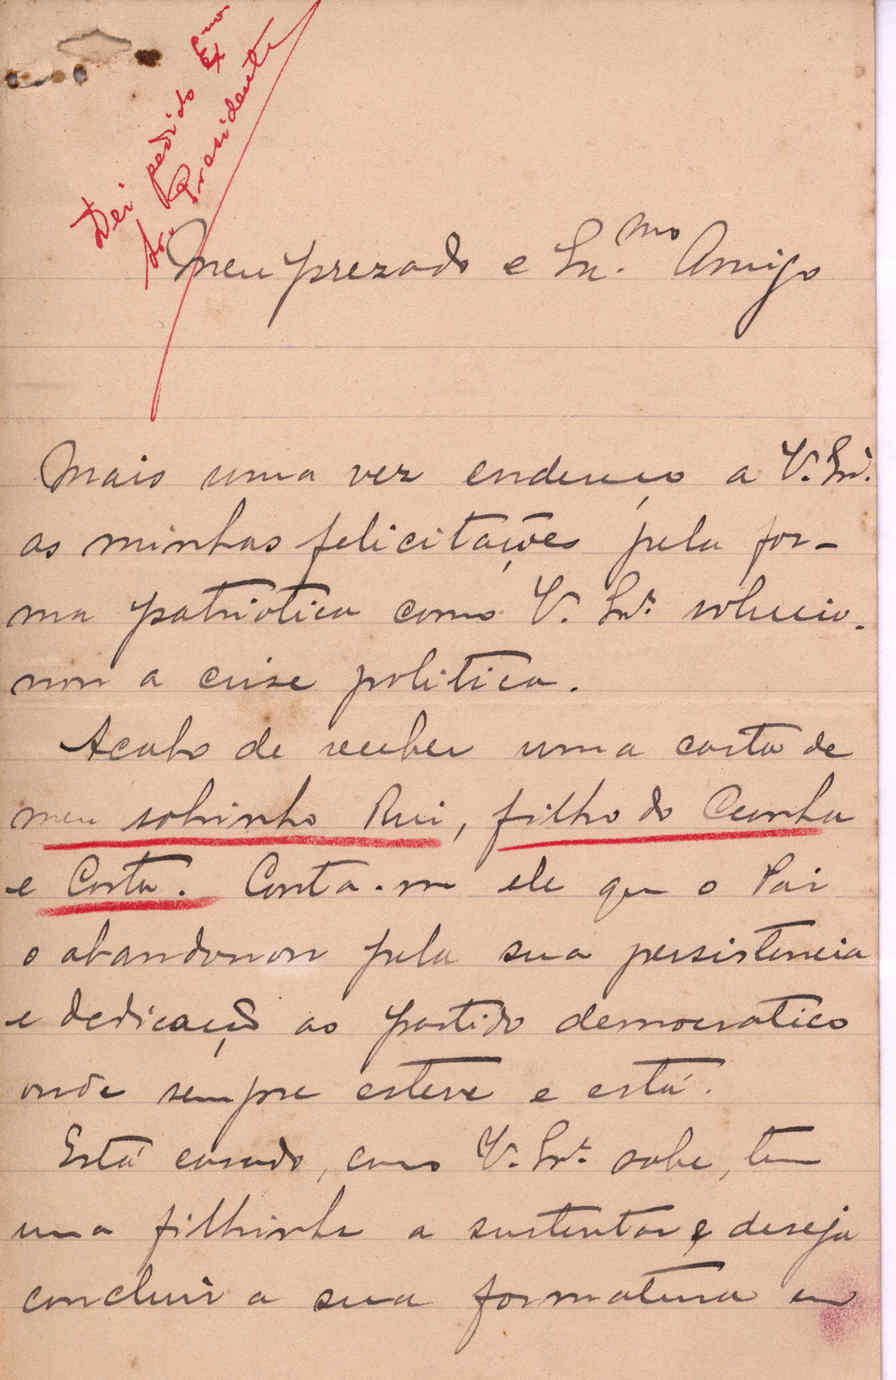 Dei pedido Exmo
Sr. Presidente
Meu prezado e Exmo Amigo
Mais uma vez endereço a V. Exª.
as minhas felicitações pela for-
ma patriotica como V. Exª. solucio-
nou a crise politica.
Acabo de receber uma carta de
meu sobrinho Rui, filho do Cunha
e Costa. Conta-me ele que o Pai
o abandonou pela sua persistencia
e dedicação ao partido democratico
onde sempre esteve e está.
Está casado, como V. Exª. sabe, tem
uma filhinha a sustentar e deseja
concluir a sua formatura em